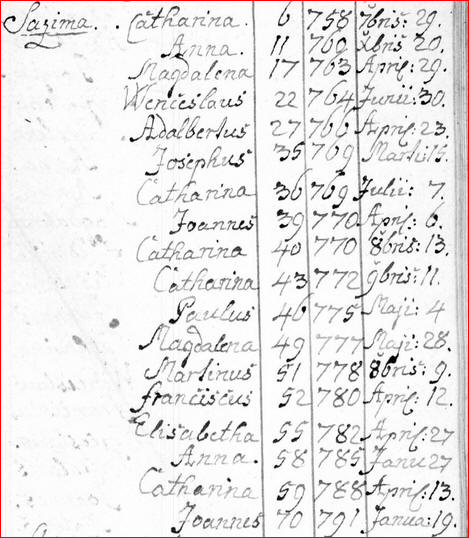 Sazima. Catharina. 6 758 7bris: 29.
Anna. 11 760 Xbris 20.
Magdalena 17 763 April: 29.
Wenceslaus 22 764 Junii: 30.
Adalbertus 27 766 April: 23.
Josephus 35 769 Martii: 15.
Catharina 36 769 Julii: 7.
Joannes 39 770 April: 6.
Catharina 40 770 8bris: 13.
Catharina 43 772 9bris: 11.
Paulus 46 775 Maji: 4
Magdalena 49 777 Maji: 28.
Martinus 51 778 8bris: 9.
franciscus 52 780 April: 12.
Elisabetha 55 782 April: 27
Anna. 58 785 27
Catharina 59 788 April: 13.
Joannes 70 791 Janua: 19.